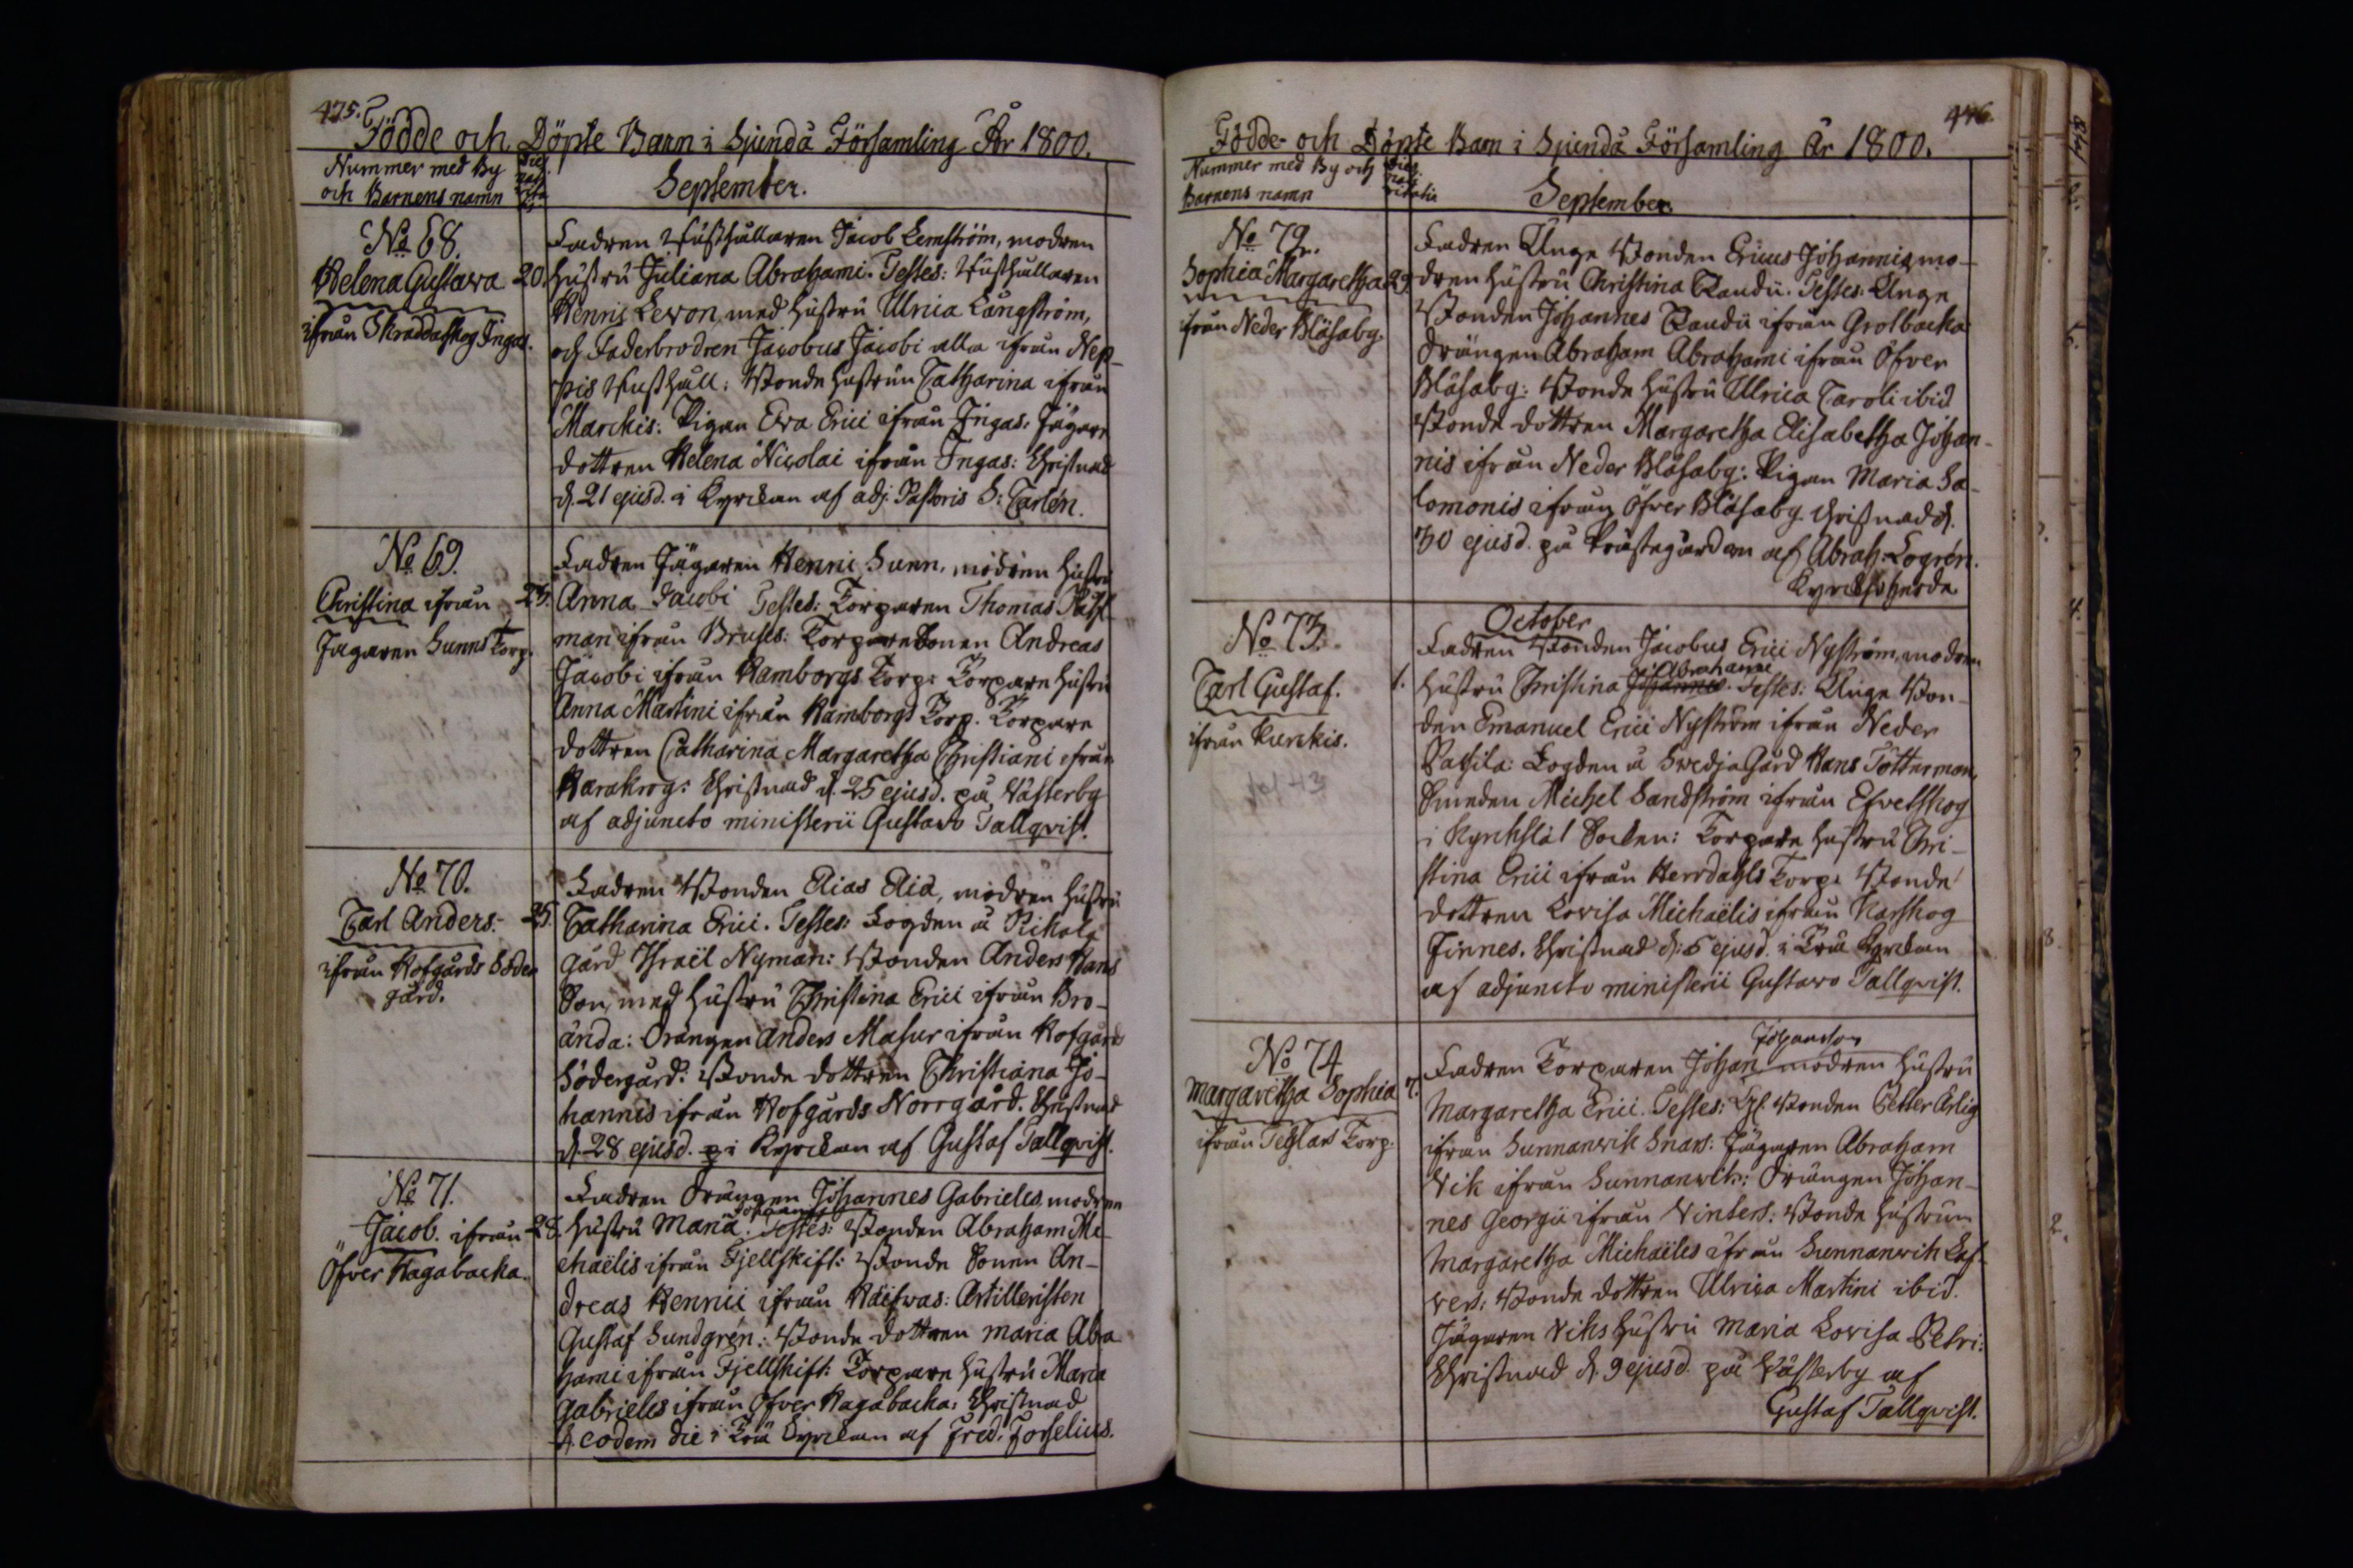 475.
Födde och Döpte Barn i Sjundå Församling År 1800.
Nummer med By
och Barnens namn
September.
No 68.
Helena Gustava
ifrån Skräddarskog Ingas.
20.
Fadren Rusthållaren Jacob Lemström, modren
hustru Juliana Abrahami. Testes: Rusthållaren
Henric Levon med hustru Ulrica Långström,
och Faderbrodren Jacobus Jacobi alla ifrån Nep-
pis Rusthåll: Bonde hustrun Catharina ifrån
Marckis: Pigan Eva Erici ifrån Ingas: Jägare
dottren Helena Nicolai ifrån Ingas: Christnad
d. 21 ejusd. i Kyrckan af adj. Pastoris S: Carlén.
No 69.
Christina ifrån
Jägaren Sunns Torp.
23.
Fadren Jägaren Henric Sunn, modren hustru
Anna Jacobi Testes: Torparen Thomas
man ifrån Bruses: Torpare Sonen Andreas
Jacobi ifrån Hamborgs Torp: Torpare hustru
Anna Martini ifrån Hamborgs Torp. Torpare
dottren Catharina Margaretha Christiani ifrån
Harakrog: Christnad d. 25 ejusd. på Västerby
af adjuncto ministerii Gustavo Tallqvist.
No 70.
Carl Anders.
ifrån Hofgårds Söder
gård.
25.
Fadren Bonden Elias Elia, modren hustru
Catharina Erici. Testes: Fogden å Pikala
gård Israël Nyman: Bonden Anders Hans
Son, med hustru Christina Erici ifrån Bro-
ända: Drängen Anders Masur ifrån Hofgårds
Södergård: Bonde dottren Christiana Jo-
hannis ifrån Hofgårds Norrgård. Christnad
d. 28 ejusd. i Kyrckan af Gustaf Tallqvist.
No 71.
Jacob. ifrån
Öfver Hagabacka.
28.
Fadren Drängen Johannes Gabrielis, modren
hustru Maria. Testes: Bonden Abraham Mi-
chaëlis ifrån Fjellskift: Bonde Sonen An-
dreas Henrici ifrån Häifwas: Artilleristen
Gustaf Sundgrén: Bonde dottren Maria Abra
hami ifrån Fjellskift: Torpare hustru Maria
Gabrielis ifrån Öfver Hagabacka: Christnad
d. eodem die i Trä Kyrckan af Fred. Forselius.
476.
Födde och Döpte Barn i Sjundå Församling År 1800.
Nummer med By och
Barnens namn
September.
No 72.
Sophia Margaretha
ifrån Neder Blåsaby.
29.
Fadren Unge Bonden Ericus Johannis, mo-
dren hustru Christina Randu. Testes: Unge
Bonden Johannes Randu ifrån Grotbacka:
Drängen Abraham Abrahami ifrån Öfver
Blåsaby: Bonde hustru Ulrica Caroli ibid
Bonde dottren Margaretha Elisabetha Johan-
nis ifrån Neder Blåsaby: Pigan Maria Sa-
lomonis ifrån Öfver Blåsaby. Christnad d.
30 ejusd. på Prästegården af Abrah. Logrén.
Kyrckoherde.
October
No 73.
Carl Gustaf.
ifrån Kurckis.
1.
Fadren Bonden Jacobus Erici Nyström, modren
Abrahami
hustru Christina Johannis. Testes: Unge Bon-
den Emanuel Erici Nyström ifrån Neder
Påthila: Fogden å Svedja Gård Hans Tötterman,
Smeden Michel Sandström ifrån Efvetskog
i Kyrckslät Socken: Torpare hustru Chri-
stina Erici ifrån Herrdahls Torp: Bonde
dottren Lovisa Michaëlis ifrån Harskog
Finnes. Christnad d. 5 ejusd. i Trä Kyrckan
af adjuncto ministerii Gustavo Tallqvist.
No 74
Margaretha Sophia
ifrån Torp.
7.
Johansson
Fadren Torparen Johan modren hustru
Margaretha Erici. Testes: Bonden Petter Ärlig
ifrån Sunnanvik Snars: Jägaren Abraham
Vik ifrån Sunnanvik: Drängen Johan-
nes Georgii ifrån Vinters: Bonde hustrun
Margaretha Michaëlis ifrån Sunnanvik
vers: Bonde dottren Ulrica Martini ibid.
Jägaren Viks hustru Maria Lovisa Petri:
Christnad d. 9 ejusd. på Västerby af
Gustaf Tallqvist.